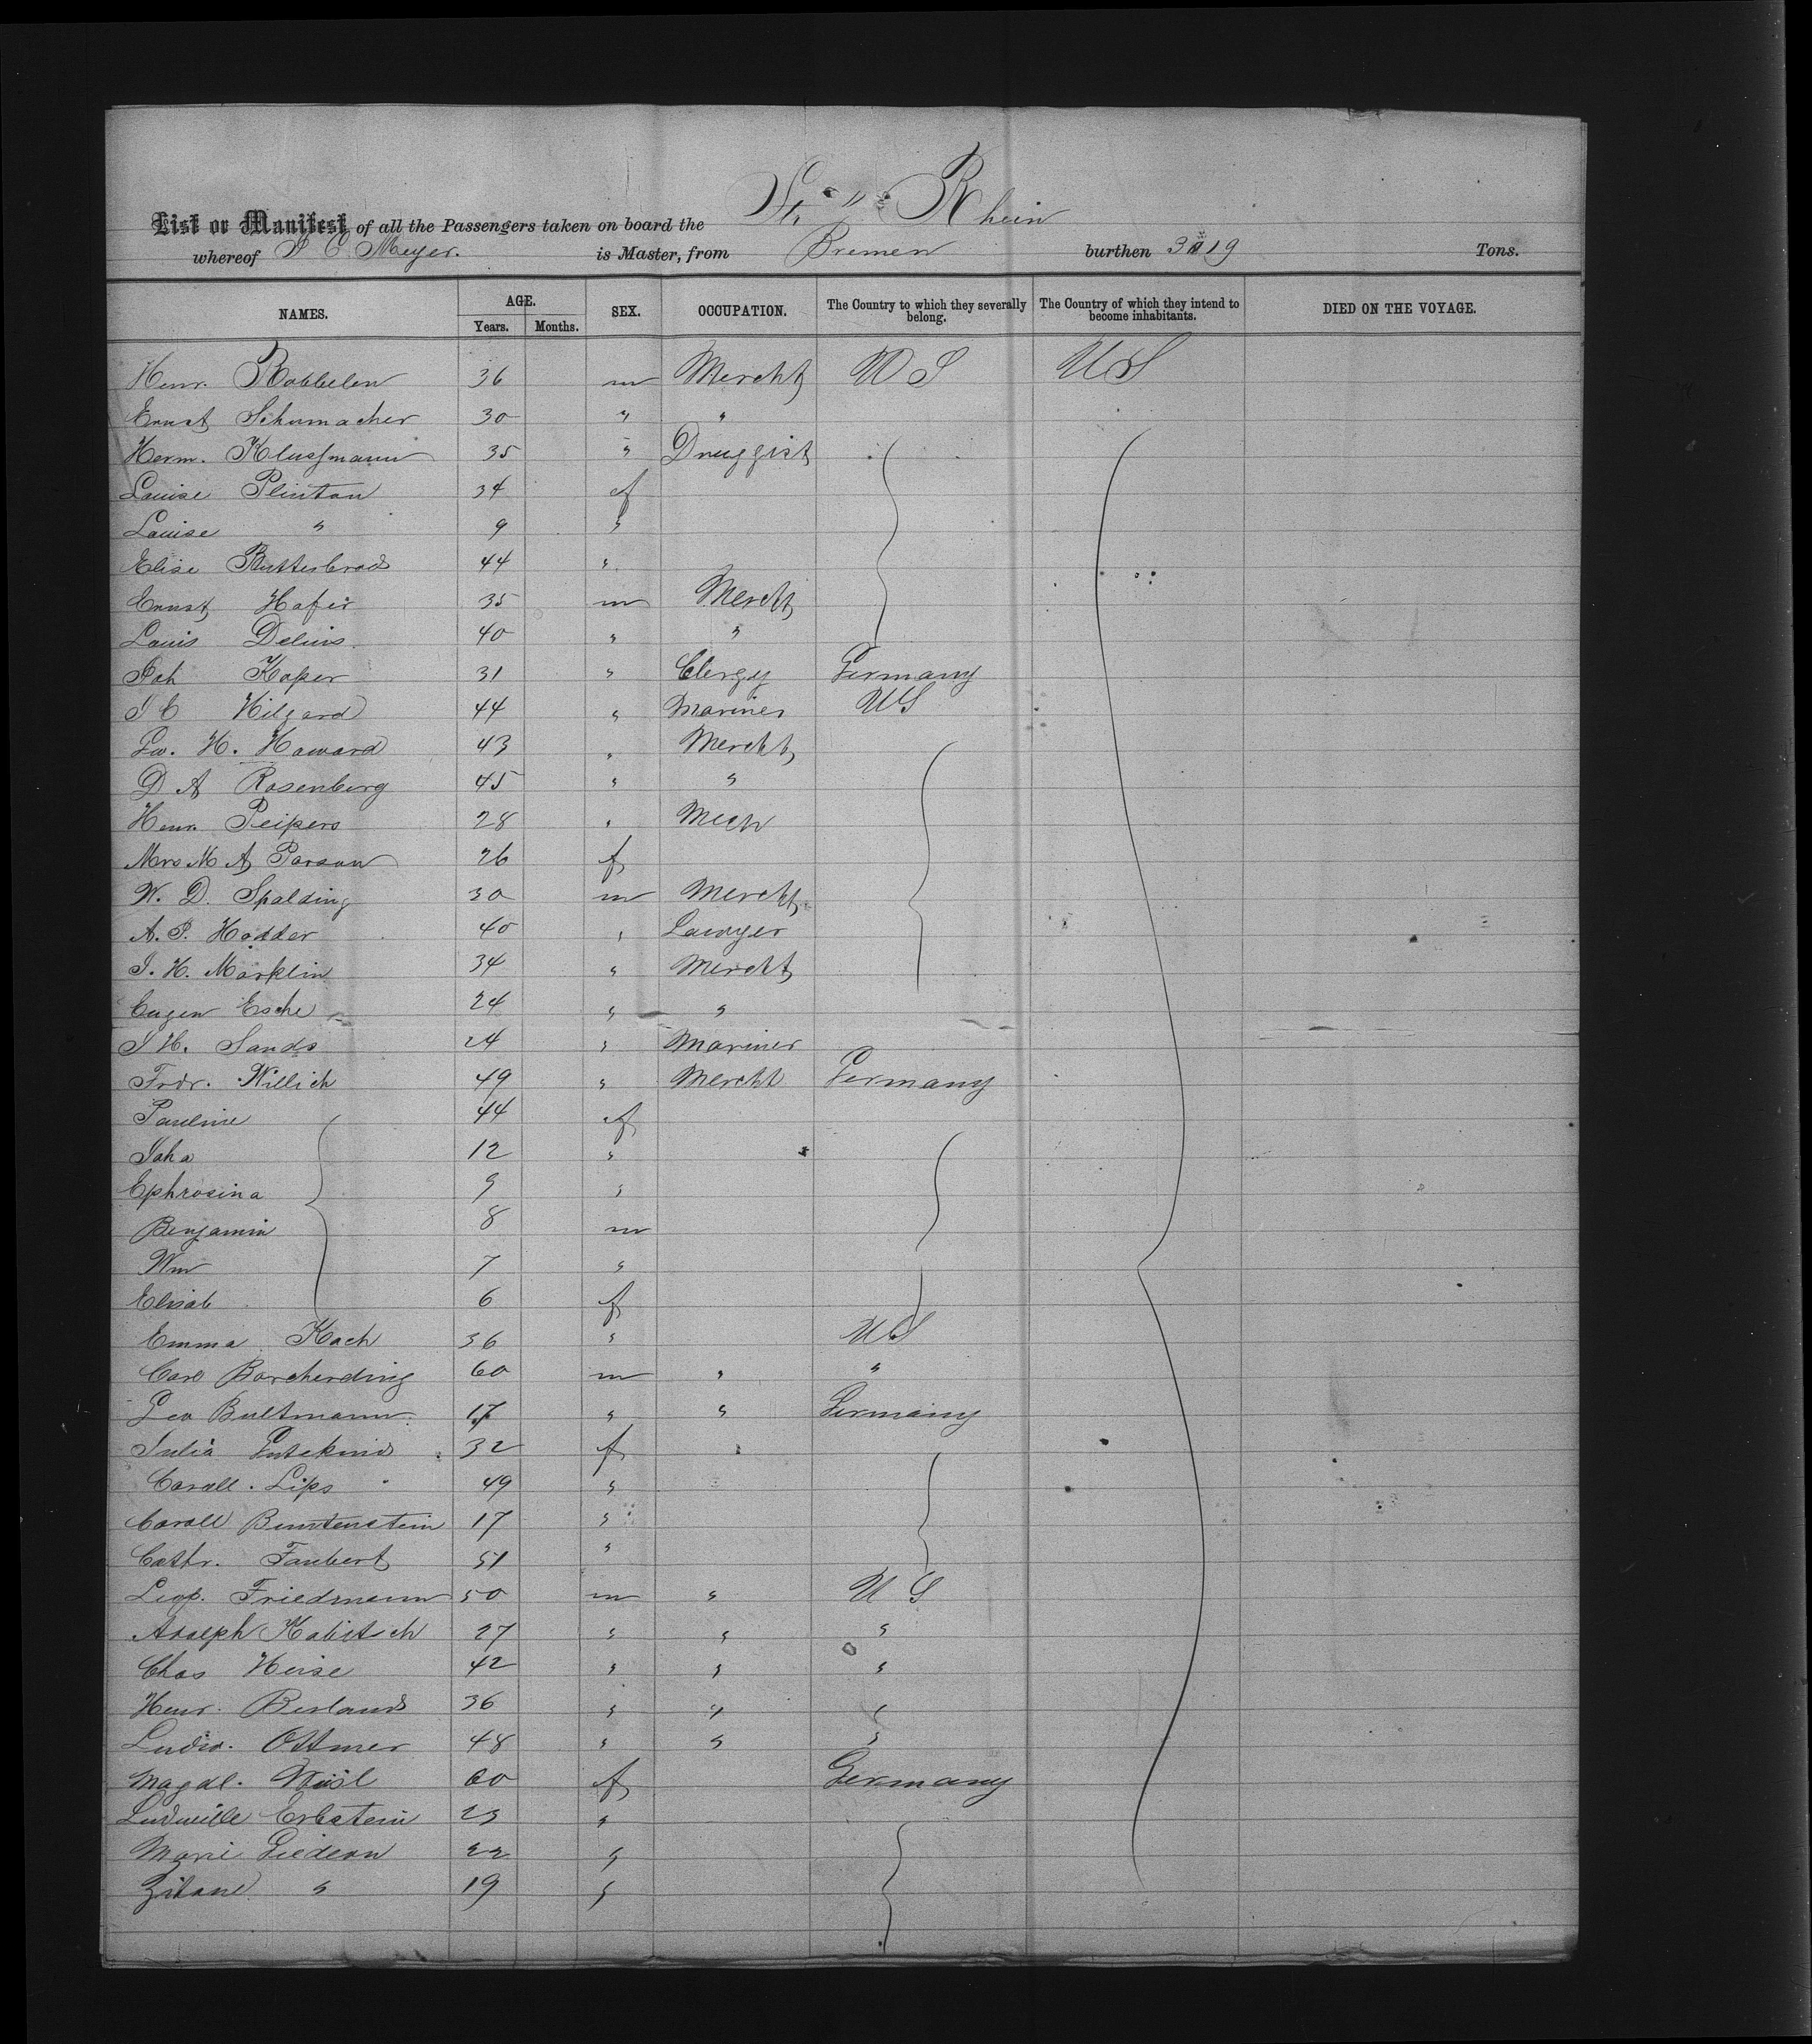 St " Rhein
List or Manifest of all the Passengers taken on board the
whereof J C Meyer. is Master, from Bremen burthen 3 19 Tons.
NAMES. AGE. SEX. OCCUPATION. The Country to which they severally belong. The Country of which they intend to become inhabitants. DIED ON THE VOYAGE.
Years. Months.
Henr. Robbelen 36 m Mercht U S U S
Ernst Schumacher 30 " "
Herm. Klussmann 35 " Druggist
Louise Plinton 34 f
Louise " 9 "
Elise Butterbrod 44 "
Ernst Hafer 35 m Mercht
Louis Delius 40 " "
Joh Koper 31 " Clergy Germany
J C Hilgard 44 " Mariner US
Gw. H. Howard 43 " Mercht
D A Rosenberg 45 " "
Henr. Peipers 28 " Mech
Mrs M A Parson 26 f
W. D. Spalding 30 m Mercht
A. P. Hodder 40 " Lawyer
J. H. Marklin 34 " Mercht
Eugen Esche 24 " "
J H. Sands 24 " Mariner
Frdr. Willich 49 " Mercht Germany
Pauline 44 f
Joha 12 "
Ephrosina 9 "
Benjamin 8 m
Wm 7 "
Elisab 6 f
Emma Koch 36 " US
Carl Borcherding 60 m " "
Geo Bultmann 17 " " Germany
Julia Gutekind 32 f
Caroll. Lips 49 "
Caroll 17 "
Cathr. Faubert 51 "
Leop. Friedmann 50 m " U S
Adolph Kabitsch 27 " " "
Chas Heise 42 " " "
Henr. Berland 36 " " "
Ludw. Ottmer 48 " " "
Magdl. 60 f Germany
Erbstein 23 "
Marie Giedeon 22 "
" 19 "